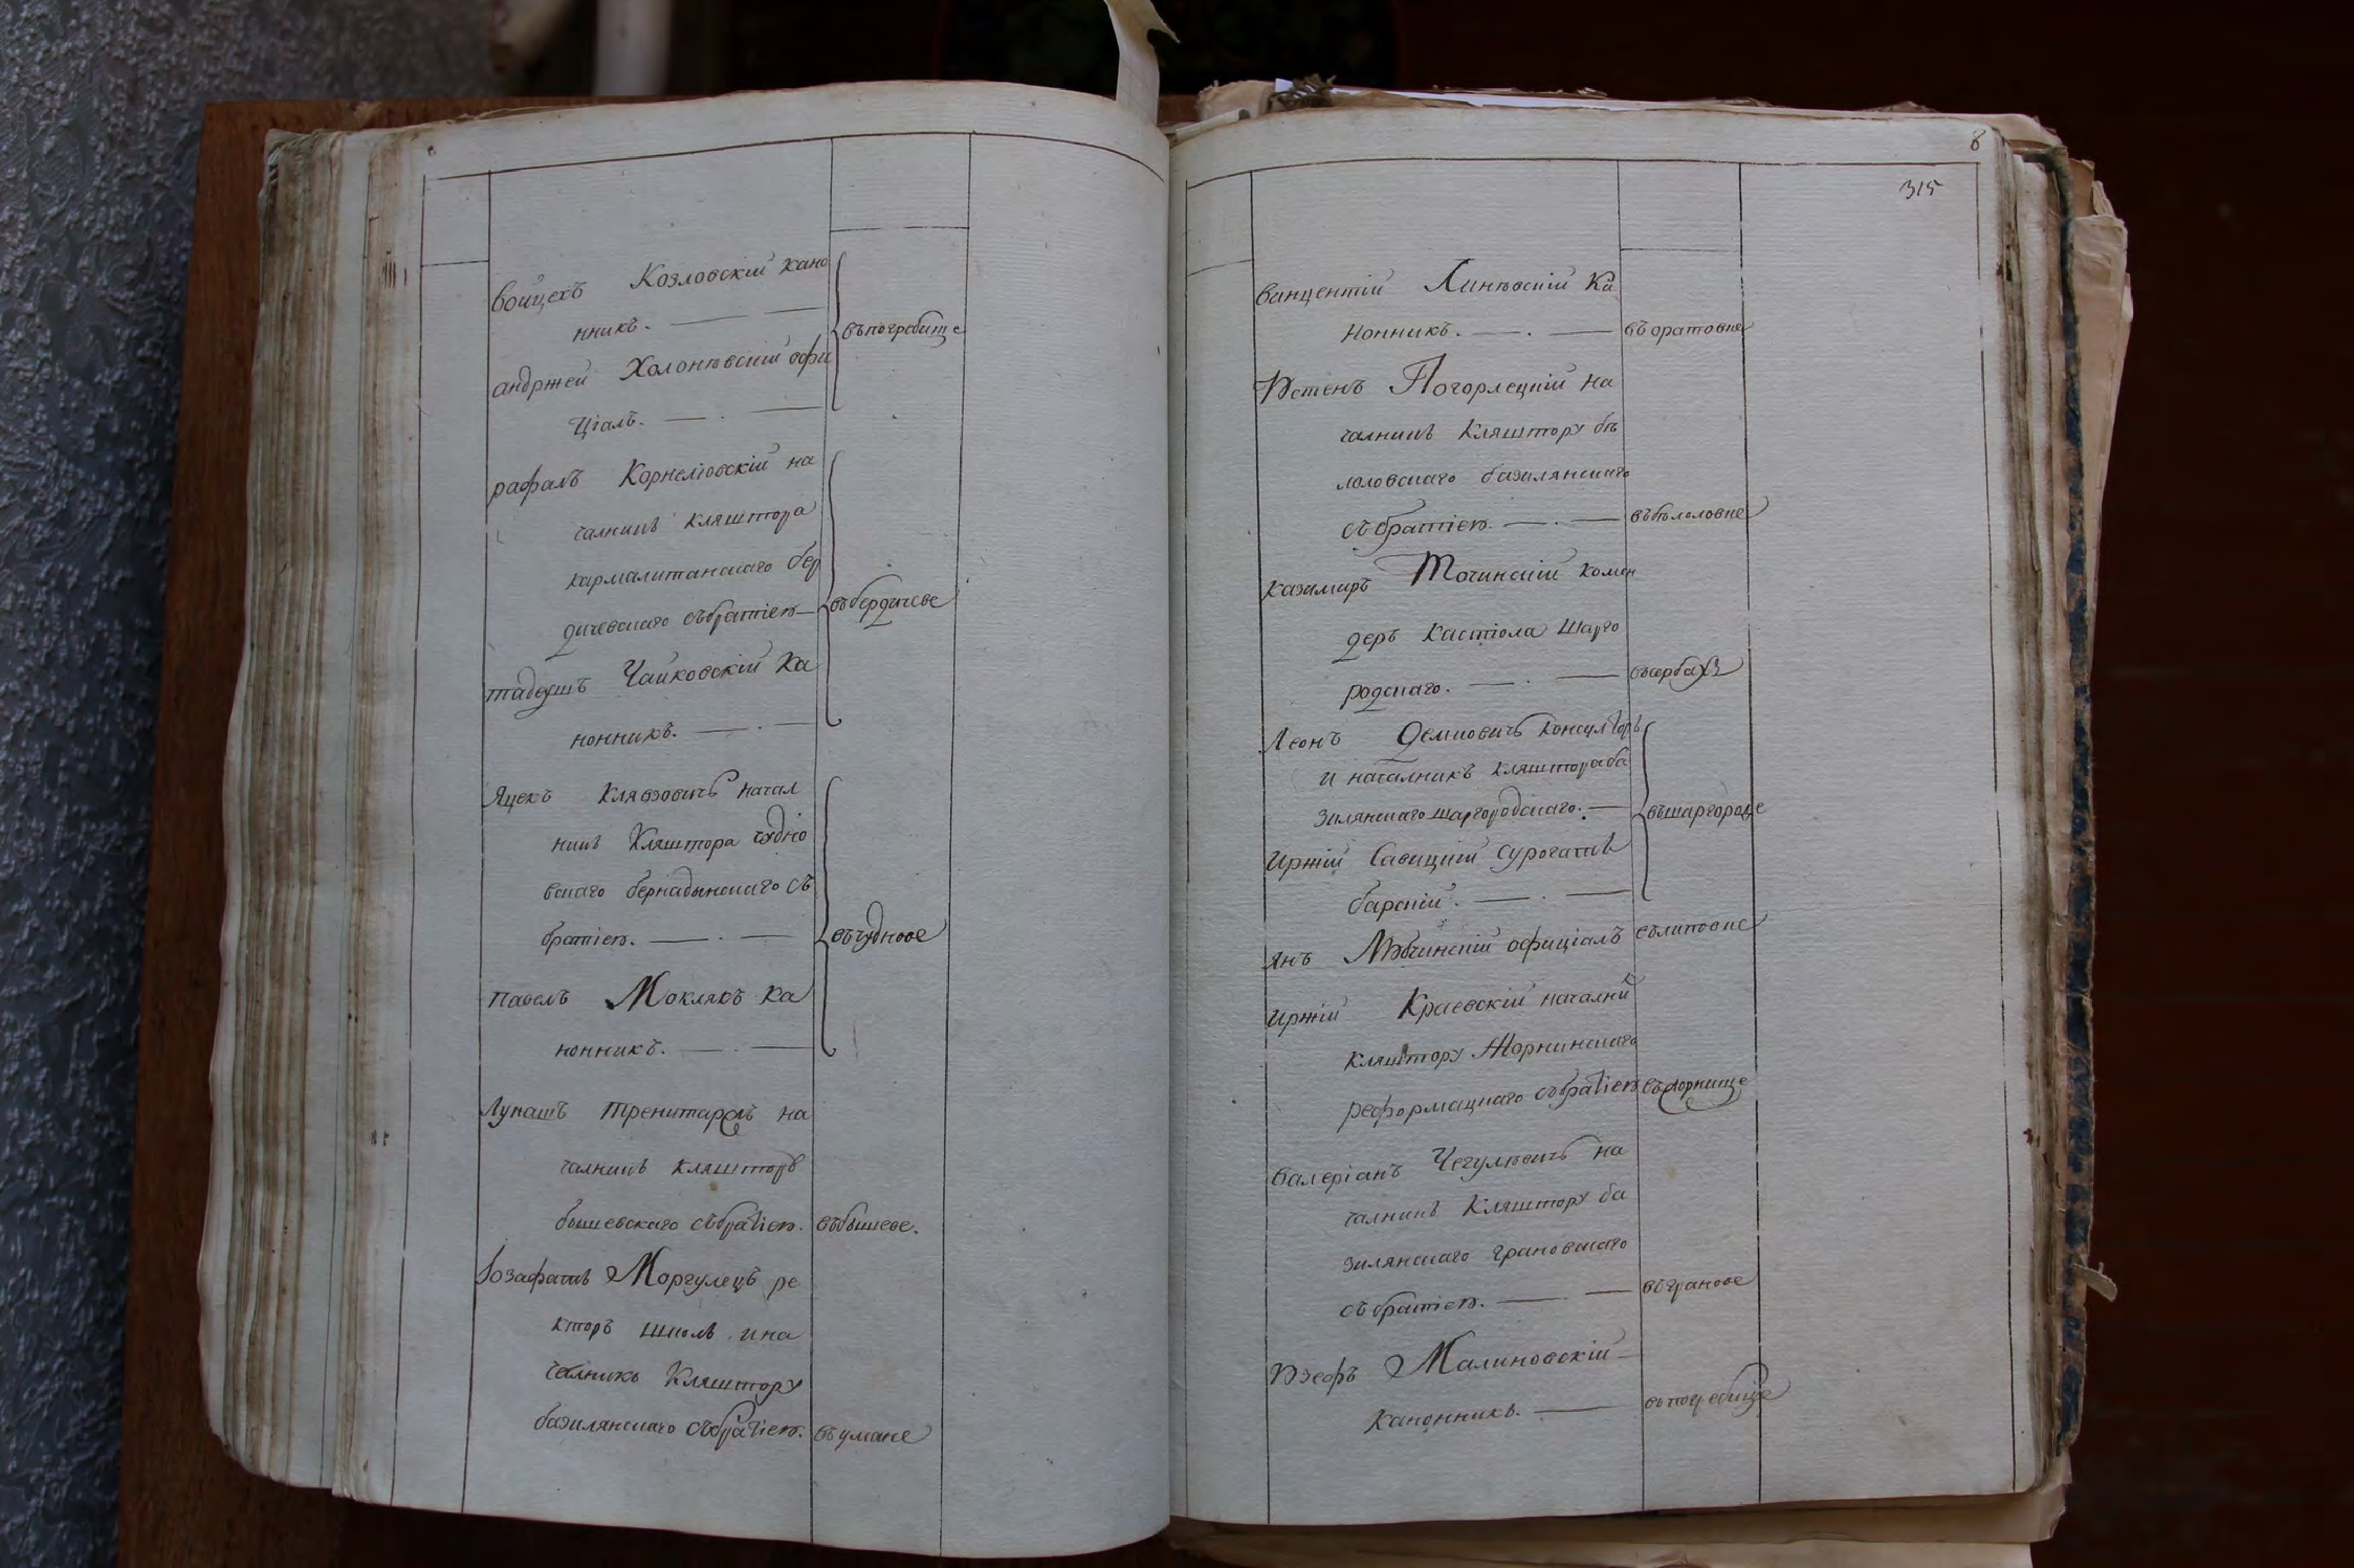 войцехъ Козловскій кано
нникъ.
въпогребище
андржей Холонѣвскій офи
ціалъ.
рафалъ Корнеліовскій на
чалникъ кляштора
кармалитанскаго бер
дичевскаго събратіею
въбердичеве
тадеушъ Чайковскій ка
нонникъ.
Яцекъ Клявзовичъ начал
никъ Кляштора чудно
вскаго бернадынскаго съ
братіею.
въчудгове
павелъ Моклякъ ка
нонникъ.
Лукашъ на
чалникъ кляшторъ
бышевскаго събратіею.
въбышеве.
Іозафатъ Моргулецъ ре
кторъ школъ ина
чалникъ Кляштору
базилянскаго събратіею.
въумане
8
315
винцентій Линѣвскій Ка
нонникъ.
въоратовне
Юстенъ Погорлецкій на
чалникъ Кляштору бѣ
лоловскаго базилянскаго
събратіею.
въбѣлоловне
казимиръ Точинскій комен
деръ Кастіола шарго
родскаго.
Леонъ Демковичъ консулторъ
и началникъ кляштораба
зилянскаго шаргородскаго.
въшаргороде
Иржій Савицкій сурогатъ
барскій.
янъ офиціалъ
въліповце
Иржій Краевскій началник
кляштору Жорнинскаго
реформацкаго събратіею
въжорнище
Валеріанъ Чегулѣвичъ на
чалникъ Кляштору ба
зилянскаго грановскаго
събратіею.
въгранове
Юзефъ Малиновскій
Канонникъ.
въпогребище